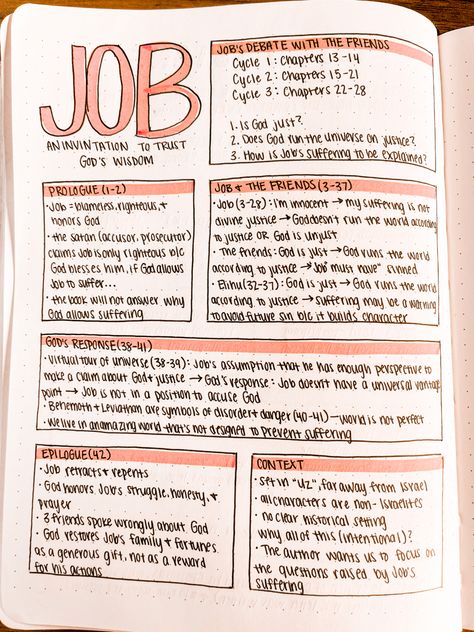 JOB
AN INVINTATION TO TRUST
GOD'S WISDOM
JOB'S DEBATE WITH THE FRIENDS
Cycle 1: Chapters 13-14
Cycle 2: Chapters 15-21
Cycle 3: Chapters 22-28
1. Is God just?
2. Does God run the universe on justice?
3. How is Job's suffering to be explained?
PROLOGUE (1-2)
• Job = blameless, righteous, +
honors God
• the satan (accusor, prosecutor)
claims Job is only righteous b/c
God blesses him, if God allows
Job to suffer...
• the book will not answer why
God allows suffering
JOB & THE FRIENDS (3-37)
• Job (3-28): I'm innocent → my suffering is not
divine justice → God doesn't run the world according
to justice OR God is unjust
• The friends: God is just → God runs the world
according to justice → Job "must have" sinned
• Elihu (32-37): God is just → God runs the world
according to justice → suffering may be a warning
to avoid future sin b/c it builds character
GOD'S RESPONSE (38-41)
• Virtual tour of universe (38-39): Job's assumption that he has enough perspective to
make a claim about God + justice → God's response: Job doesn't have a universal vantage
point → Job is not in a position to accuse God
• Behemoth + Leviathan are symbols of disorder + danger (40-41) — world is not perfect
• We live in an amazing world that's not designed to prevent suffering
EPILOGUE (42)
• Job retracts + repents
• God honors Job's struggle, honesty, +
prayer
• 3 friends spoke wrongly about God
• God restores Job's family + fortunes
as a generous gift, not as a reward
for his actions
CONTEXT
• set in "Uz", far away from Israel
• all characters are non-Israelites
• no clear historical setting
why all of this (intentional)?
• The author wants us to focus on
the questions raised by Job's
suffering